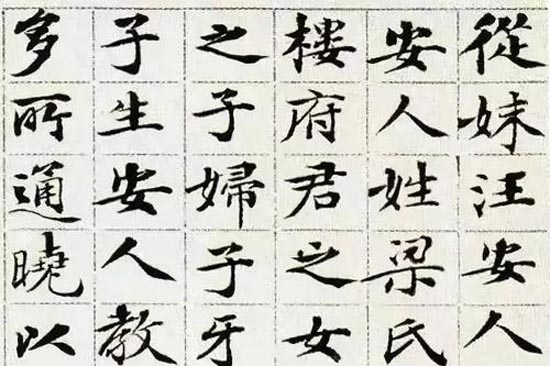 從妹汪安人
安人姓梁氏
樓府君之女
之子婦子牙
子生安人教
多所通曉以